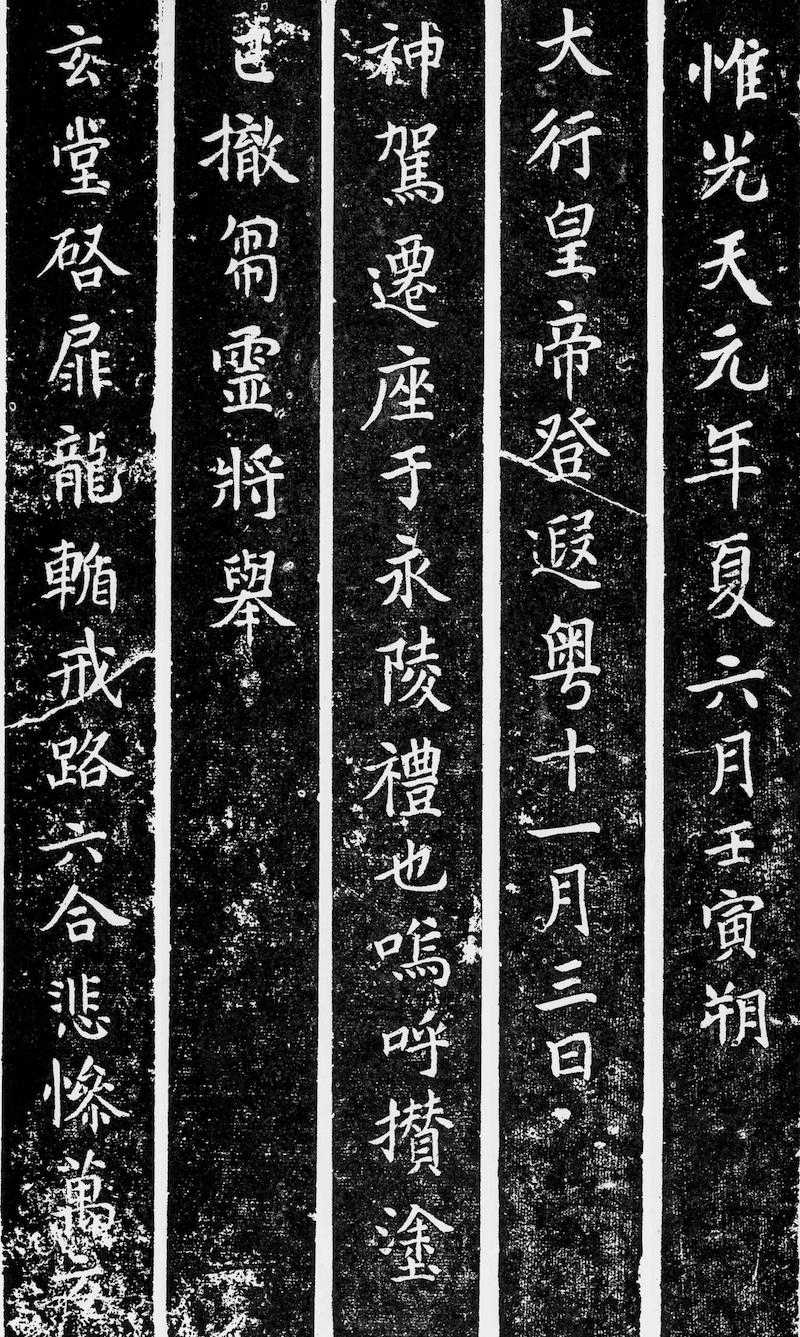 惟光天元年夏六月壬寅朔
大行皇帝登遐粤十一月三日
神駕遷座于永陵禮也嗚呼攢塗
已撤芻靈將舉
玄堂啓扉龍輴戒路六合悲慘萬